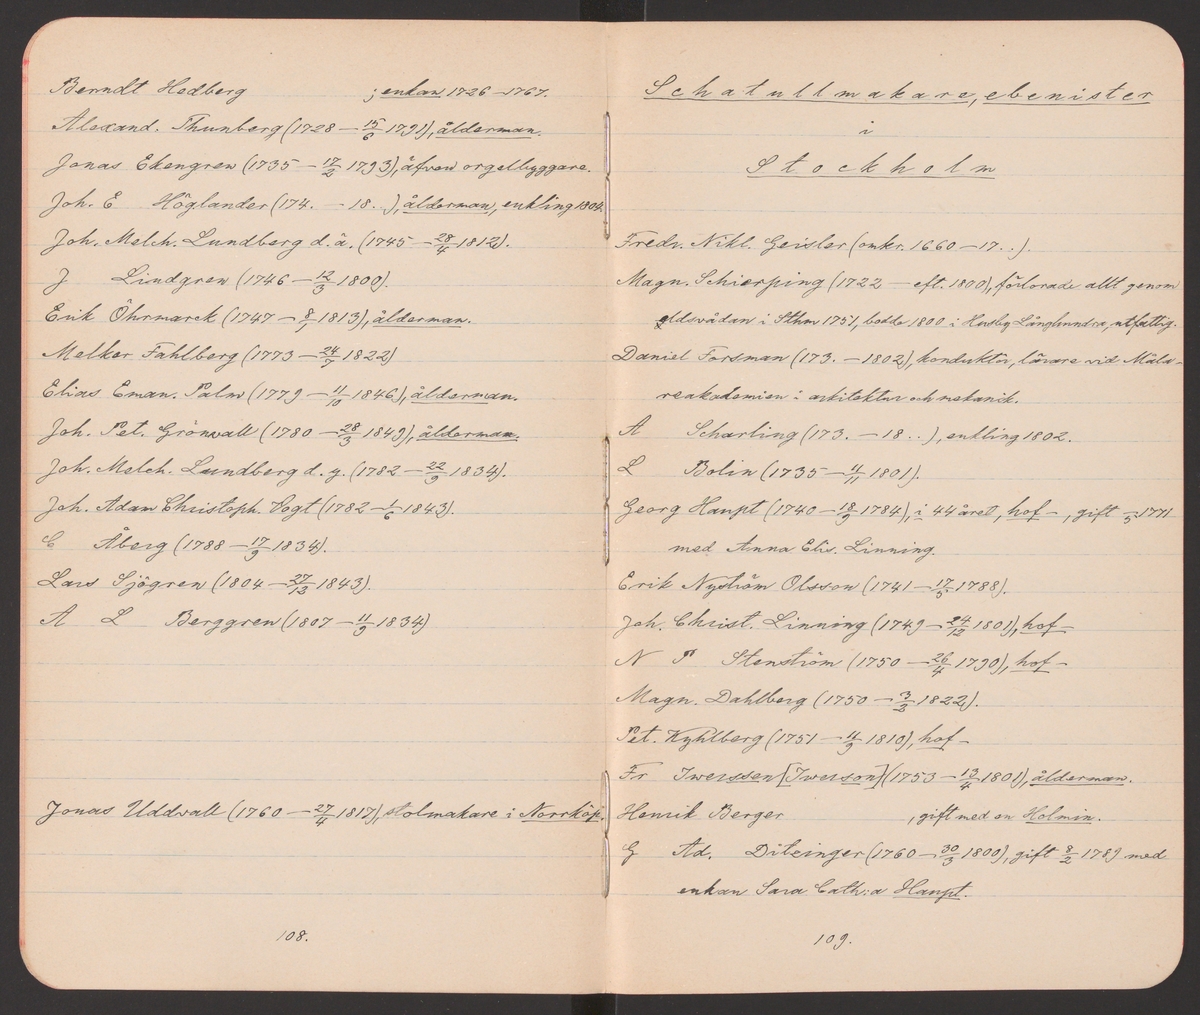 Berndt Hedberg ; enkan 1726 – 1767.
Alexand. Thunberg (1728 – 15/6 1791), ålderman.
Jonas Ekengren (1735 – 17/2 1793), äfven orgelbyggare.
Joh. E Höglander (174. – 18..), ålderman, enkling 1804.
Joh. Melch. Lundberg d.ä. (1745 – 28/4 1812).
J Lindgren (1746 – 12/3 1800).
Erik Öhrmarck (1747 – 8/1 1813), ålderman.
Melker Fahlberg (1773 – 24/7 1822)
Elias Eman. Palm (1779 – 11/10 1846), ålderman.
Joh. Pet. Grönvall (1780 – 28/3 1849), ålderman.
Joh. Melch. Lundberg d.y. (1782 – 22/9 1834).
Joh. Adam Christoph. Vogt (1782 – 1/6 1843).
C Åberg (1788 – 17/9 1834).
Lars Sjögren (1804 – 27/12 1843).
A L Berggren (1807 – 11/9 1834)
Jonas Uddvall (1760 – 27/4 1817), stolmakare i Norrköp.
108.
Schatullmakare, ebenister
i
Stockholm
Fredr. Nikl. Geisler (omkr. 1660 – 17..).
Magn. Schierping (1722 – eft. 1800), förlorade allt genom
eldsvådan i Sthm 1751, bodde 1800 i Husby Långhundra, utfattig.
Daniel Forsman (173. – 1802), konduktör, lärare vid Måla-
reakademien i arkitektur och mekanik.
A Scharling (173. – 18..), enkling 1802.
L Bolin (1735 – 4/11 1801).
Georg Haupt (1740 – 18/9 1784), i 44 året, hof –, gift –/5 1771
med Anna Elis. Linning.
Erik Nyström Olsson (1741 – 17/5 1788).
Joh. Christ. Linning (1749 – 24/12 1801), hof –
N P Stenström (1750 – 26/4 1790), hof –
Magn. Dahlberg (1750 – 3/2 1822).
Pet. Kyhlberg (1751 – 4/9 1810), hof –
Fr Iwerssen [Iwerson] (1753 – 13/4 1801), ålderman.
Henrik Berger , gift med en Holmin.
G Ad. Ditzinger (1760 – 30/3 1800), gift 8/2 1789 med
enkan Sara Cath:a Haupt.
109.